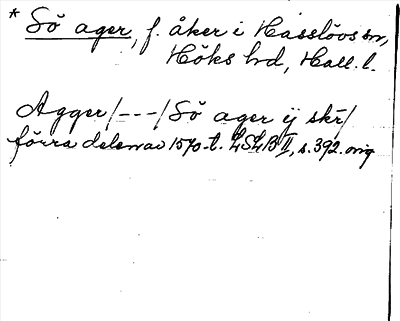 * Sö ager, f. åker i Hasslövs sn,
Höks hd, Hall. l.
Agger/---/Sö ager ij skr/
förra delen av 1570-t. LSLB II, s. 392. orig